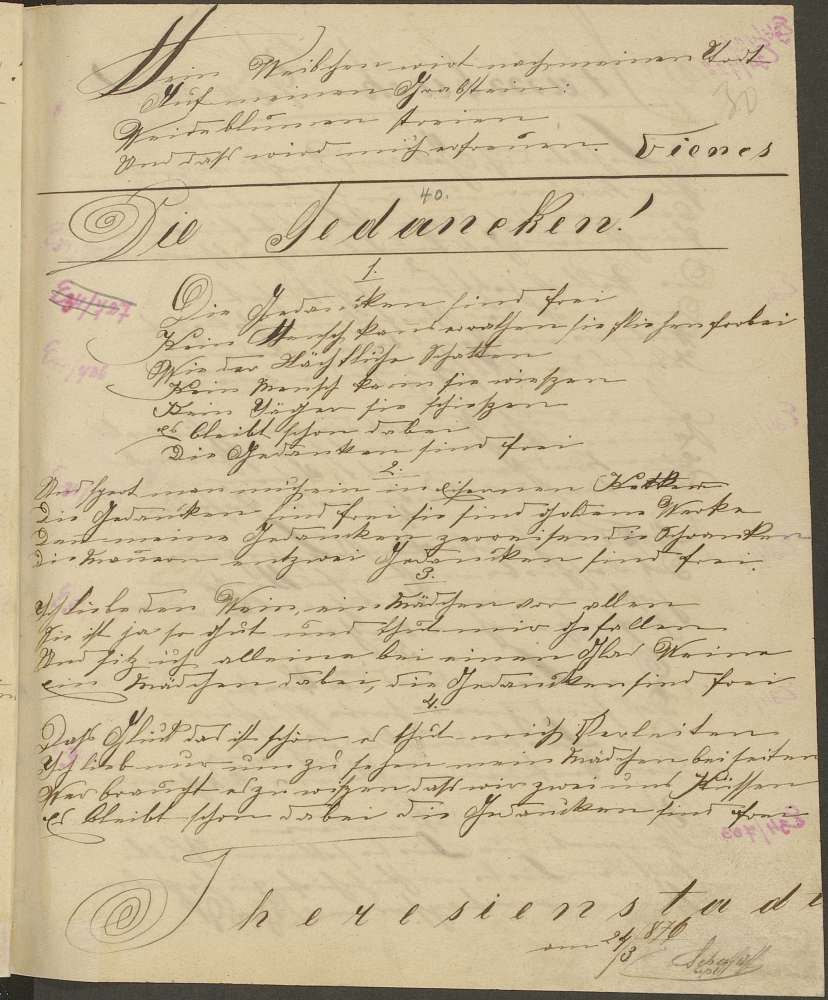 Mein Weibchen wird nach meinen Todt
Auf meinen Grabstein:
Weideblumen streien
Und dass wird mich erfreuen. Vienes
30
40.
Die Gedancken!
1.
Die Gedancken sind frei
Kein Mensch kans errathen sie fliehen forbei
Wie der Nächtliche Schatten
Kein Mensch kann sie wießen
Kein Jäger sie schießen
es bleibt schon dabei
Die Gedanken sind frei
2.
Und spert man mich ein in eisernen Ketker
Die Gedancken sind frei sie sind goldene Werke
Den meine Gedancken zerreisen die Schranken
die Mauern entzwei Gedancken sind frei.
3.
Ich liebe den Wein, ein Mädchen vor allen
Sie ist ja so gut und thut mir gefallen
Und sitz ich alleine bei einen Glas Weine
ein Mädchen dabei, die Gedancken sind frei
4.
Dass Glück das ist schön es thut mich Verleiten
Ich lieb nur um zu sehen mein Mädchen bei seiten
Wer braucht es zu wißen dass wir zwei uns Küssen
es bleibt schon dabei die Gedancken sind frei
Theresienstadt
am 24/3 1876